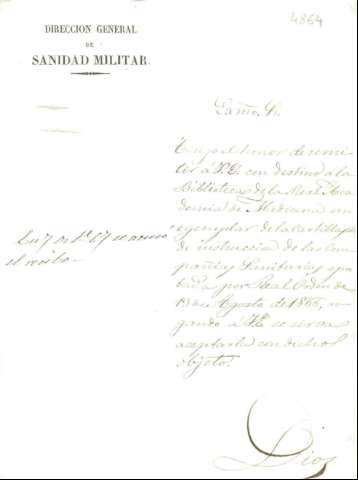 4864
DIRECCION GENERAL
DE
SANIDAD MILITAR.
Excmo. Sr.
Tengo el honor de remi
tir á V.E. con destino á la
Biblioteca de la Real Aca
demia de Medicina un
ejemplar de la cartilla
de instruccion de las Com
pañias Sanitarias apro
bada por Real Orden de
13 de Agosto de 1865, ro
gando á V.E. se sirva
aceptarla con dicho
objeto.
En 7 de
el recibo
Dios